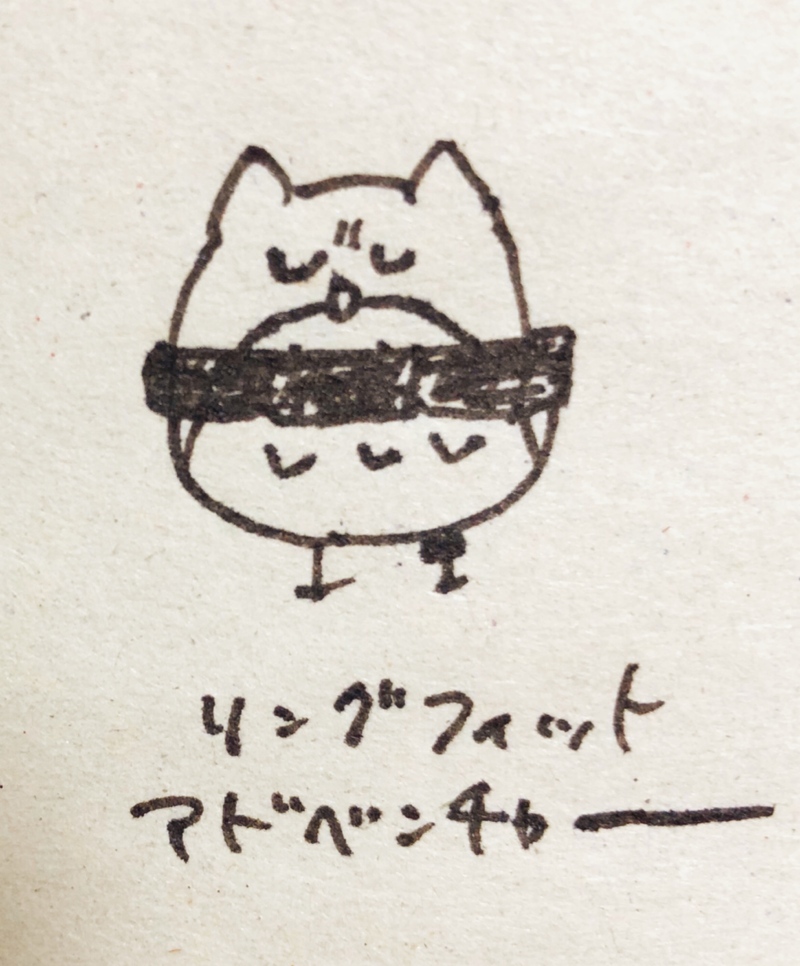 リングフィット
アドベンチャー